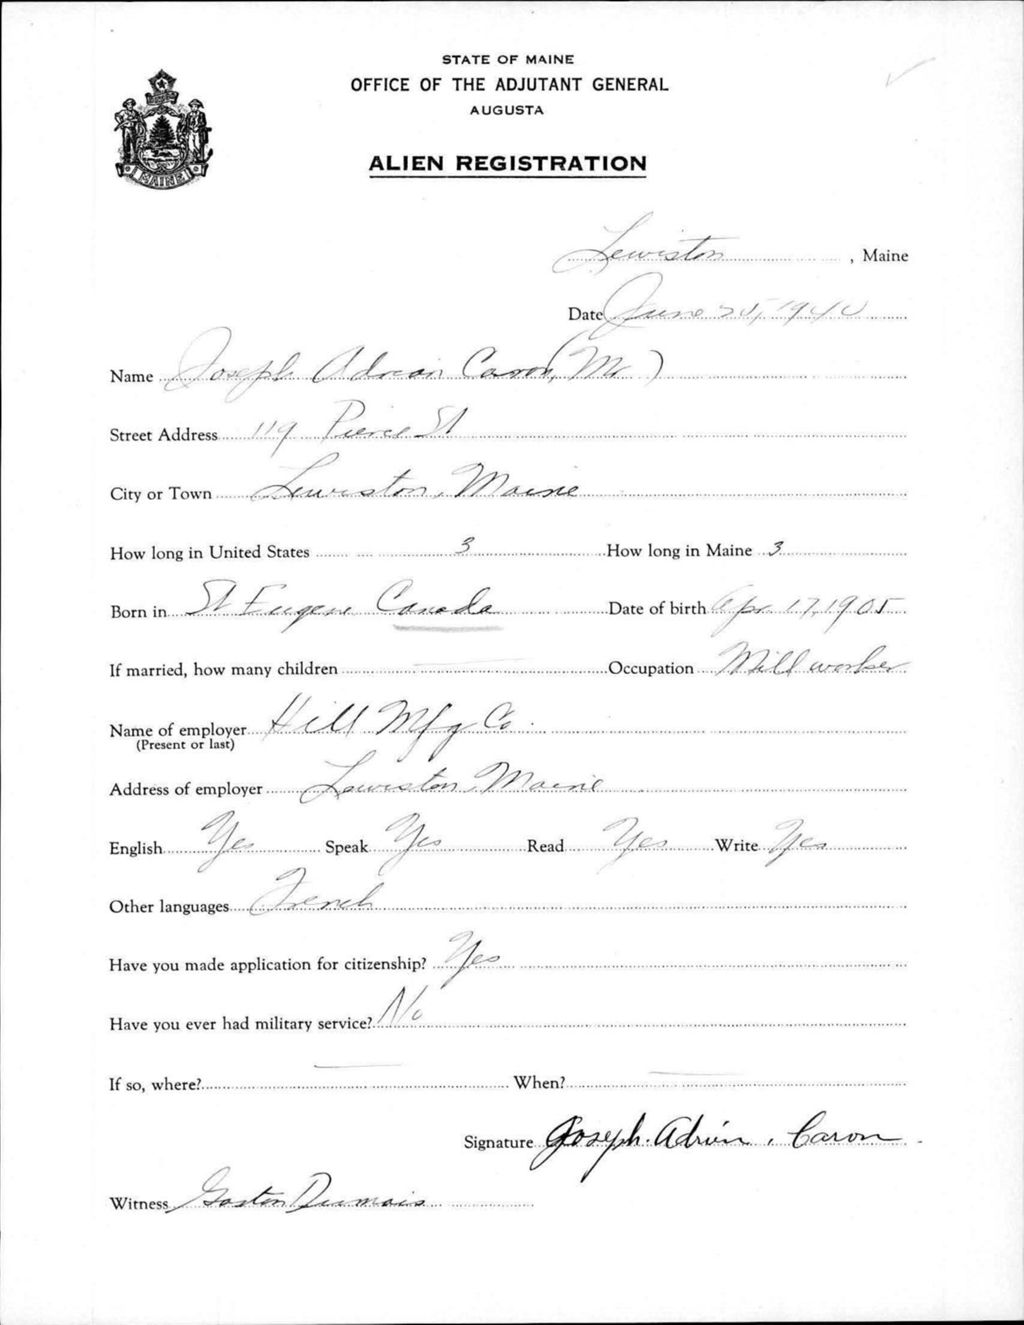 STATE OF MAINE
OFFICE OF THE ADJUTANT GENERAL
AUGUSTA
ALIEN REGISTRATION
MAINE
Lewiston, Maine
Date June 25, 1940
Name Joseph Adrian Caron, (Mr)
Street Address 119 Pierce St
City or Town Lewiston, Maine
How long in United States 3 How long in Maine 3
Born in St Eugene Canada Date of birth Apr 17, 1905
If married, how many children — Occupation Mill worker
Name of employer Hill Mfg Co.
(Present or last)
Address of employer Lewiston, Maine
English Yes Speak Yes Read Yes Write Yes
Other languages French
Have you made application for citizenship? Yes
Have you ever had military service? No
If so, where? — When? —
Signature Joseph. Adrien. Caron
Witness Gaston Dumais